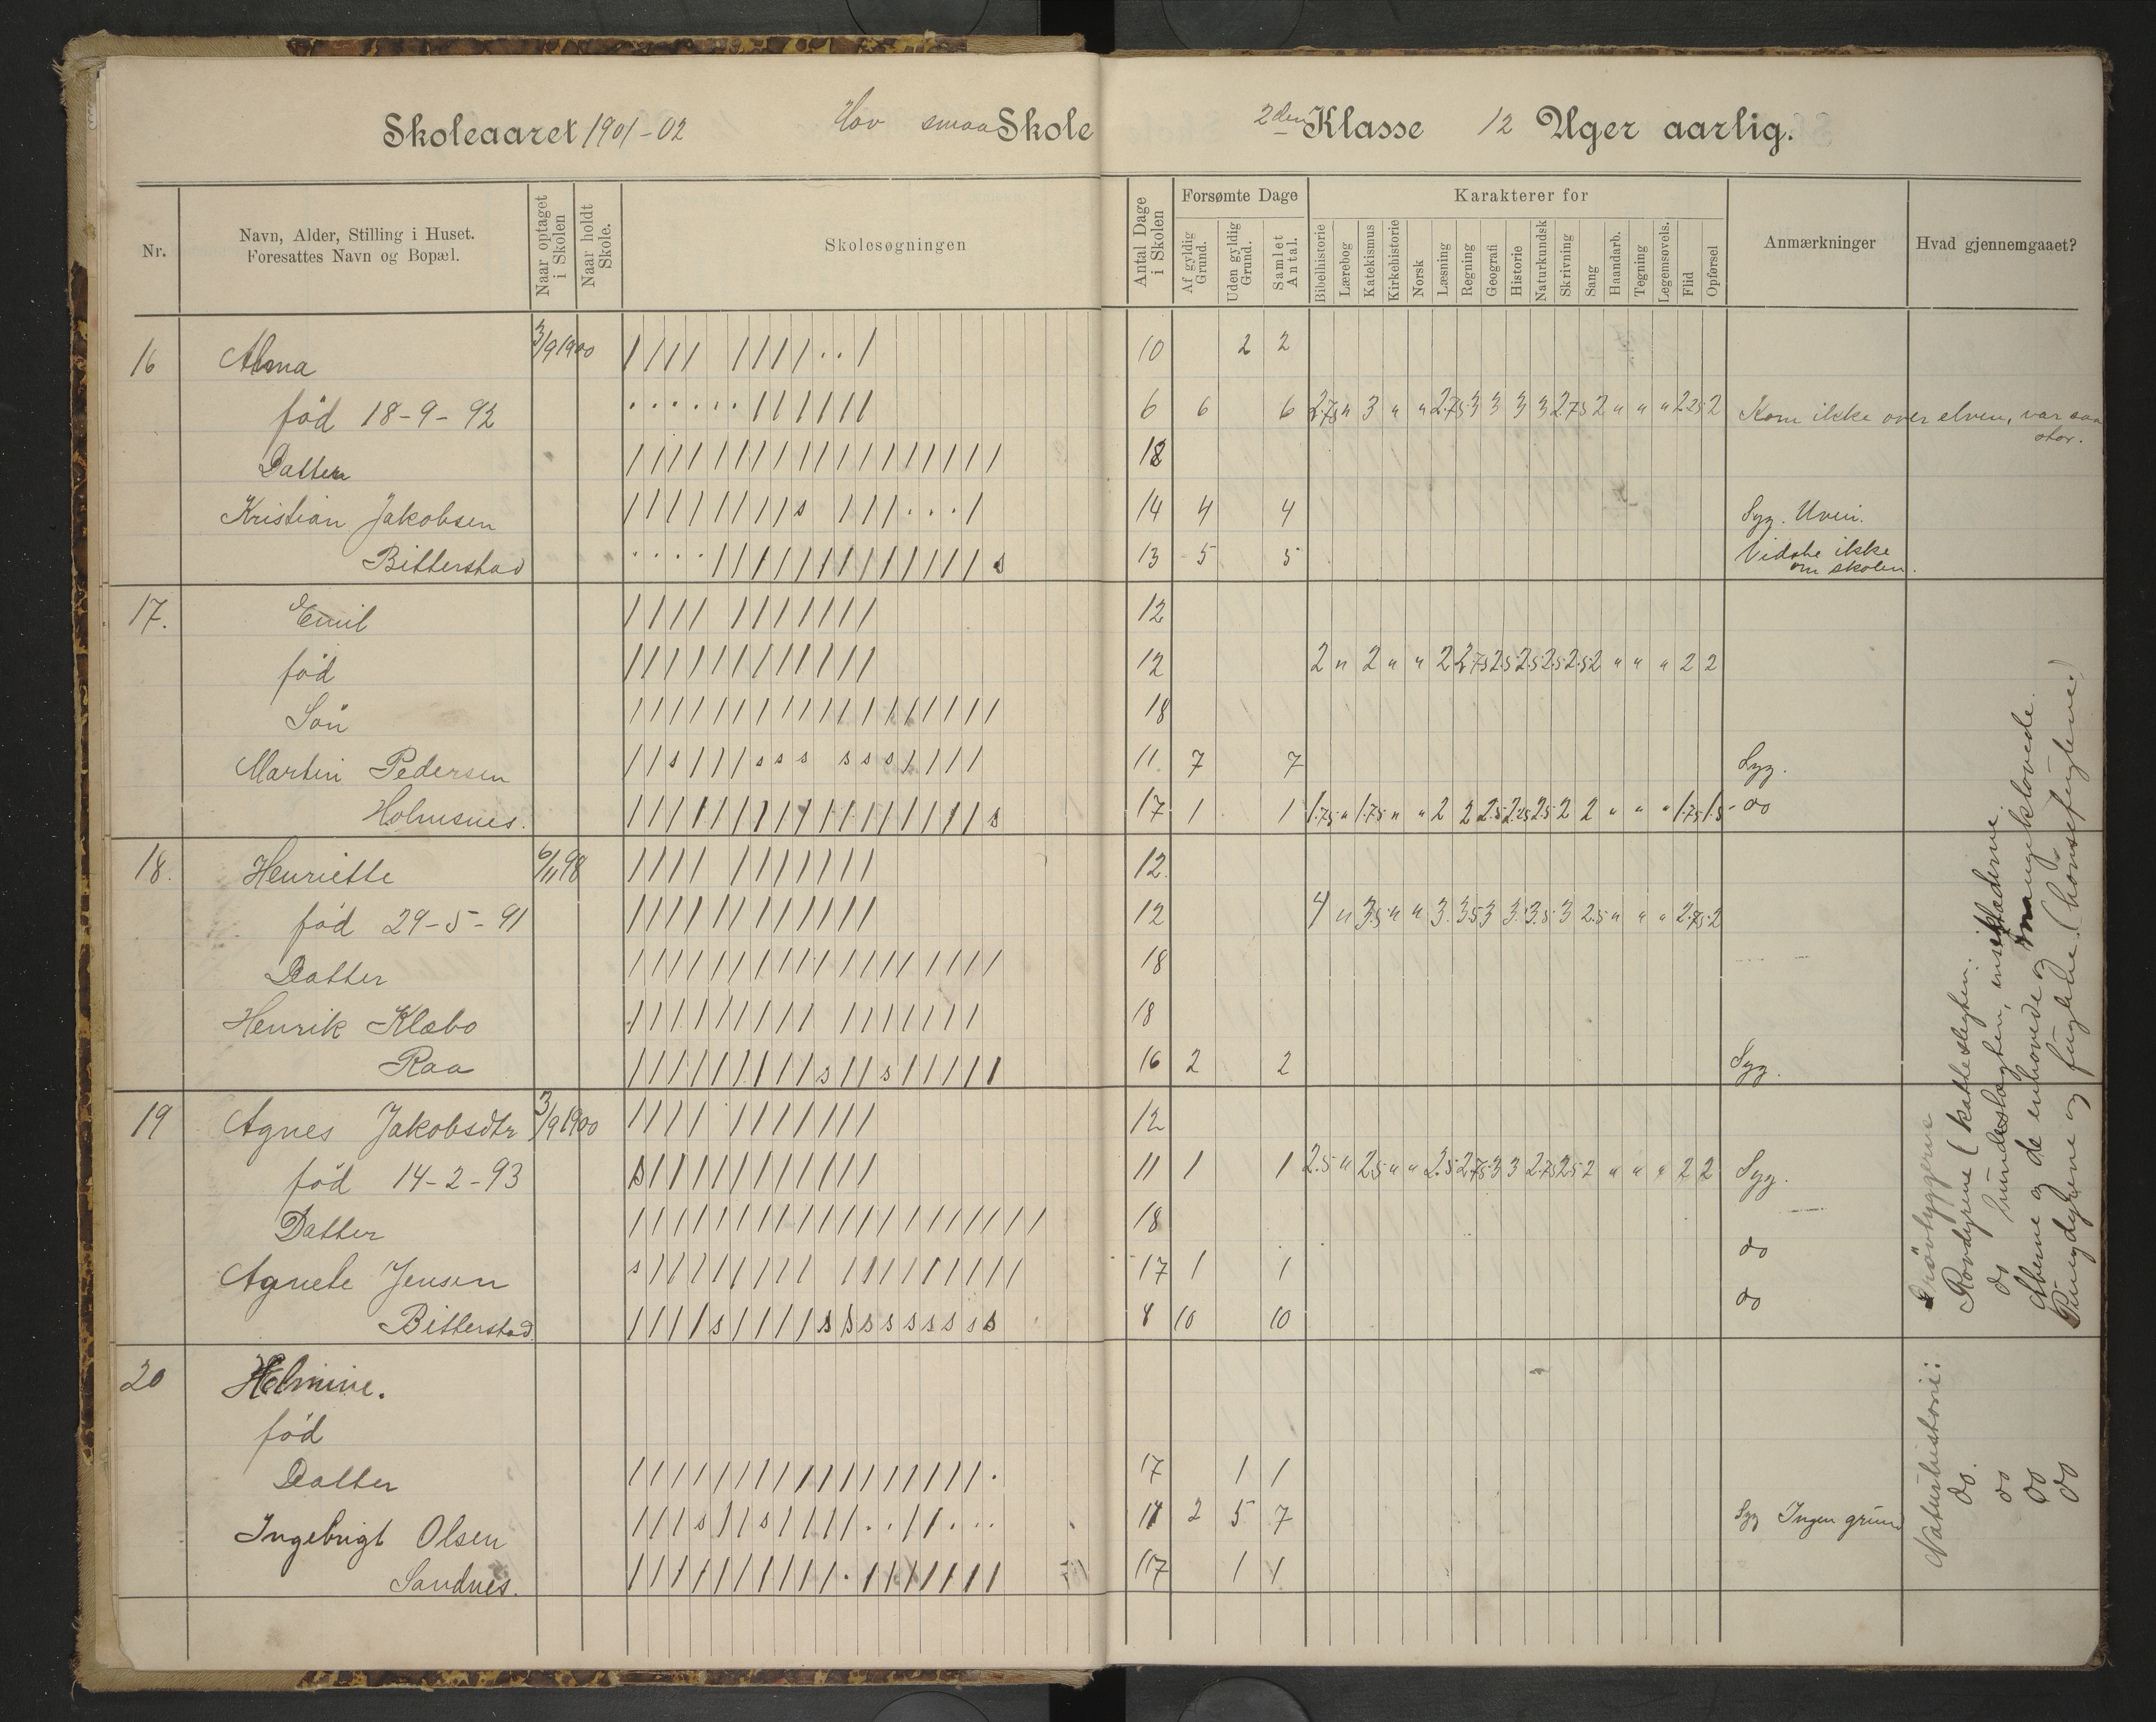 Skoleaaret 1901-02 Hov smaa Skole 2den Klasse 12 Uger aarlig.
Nr.
Navn, Alder, Stilling i Huset.
Foresattes Navn og Bopæl.
Naar optaget i Skolen
Naar holdt Skole.
Skolesøgningen
Antal Dage i Skolen
Forsømte Dage
Af gyldig Grund.
Uden gyldig Grund.
Samlet Antal.
Karakterer for
Bibelhistorie
Lærebog
Katekismus
Kirkehistorie
Norsk
Læsning
Regning
Geografi
Historie
Naturkundsk
Skrivning
Sang
Haandarb.
Tegning
Legemsøvels.
Flid
Opførsel
Anmærkninger
Hvad gjennemgaaet?
16 Alma 3/9 1900 10 2 2
fød 18-9-92 6 6 6 2.75 " 3 " " 2.75 3 3 3 3 2.75 2 " " " 2.25 2 Kom ikke over elven, var saa stor.
Datter 18
Kristian Jakobsen 14 4 4 Syg. Uveir.
Bitterstad 13 5 5 Vidste ikke om skolen.
17. Emil 12
fød 12 2 " 2 " " 2 2.75 2.5 2.5 2.5 2.5 2 " " " 2 2
Søn 18
Martin Pedersen 11 7 7 Syg.
Holmsnes. 17 1 1 1.75 " 1.75 " " 2 2 2.5 2.25 2.5 2 2 " " " 1.75 1.5 do
18. Henriette 6/11 98 12
fød 29-5-91 12 4 " 3.5 " " 3 3.5 3 3 3.5 3 2.5 " " " 2.75 2
Datter 18
Henrik Klæbo 18
Raa 16 2 2 Syg.
19 Agnes Jakobsdtr 3/9 1900 12
fød 14-2-93 11 1 1 2.5 " 2.5 " " 2.5 2.75 3 3 2.75 2.5 2 " " " 2 2 Syg.
Datter 18
Agnete Jensen 17 1 1 do
Bitterstad 8 10 10 do
20 Helmine.
fød
Datter 17 1 1
Ingebrigt Olsen 11 2 5 7 Syg Ingen grund
Sandnes. 17 1 1
Naturhistorie: Drøvtyggerne
do. Rovdyrene (katteslegten.
do do hundeslægten, insektæderne
do Aberne og de enhovede og mangeklovede.
do Pungdyrene og fuglene. (hønsefuglene)